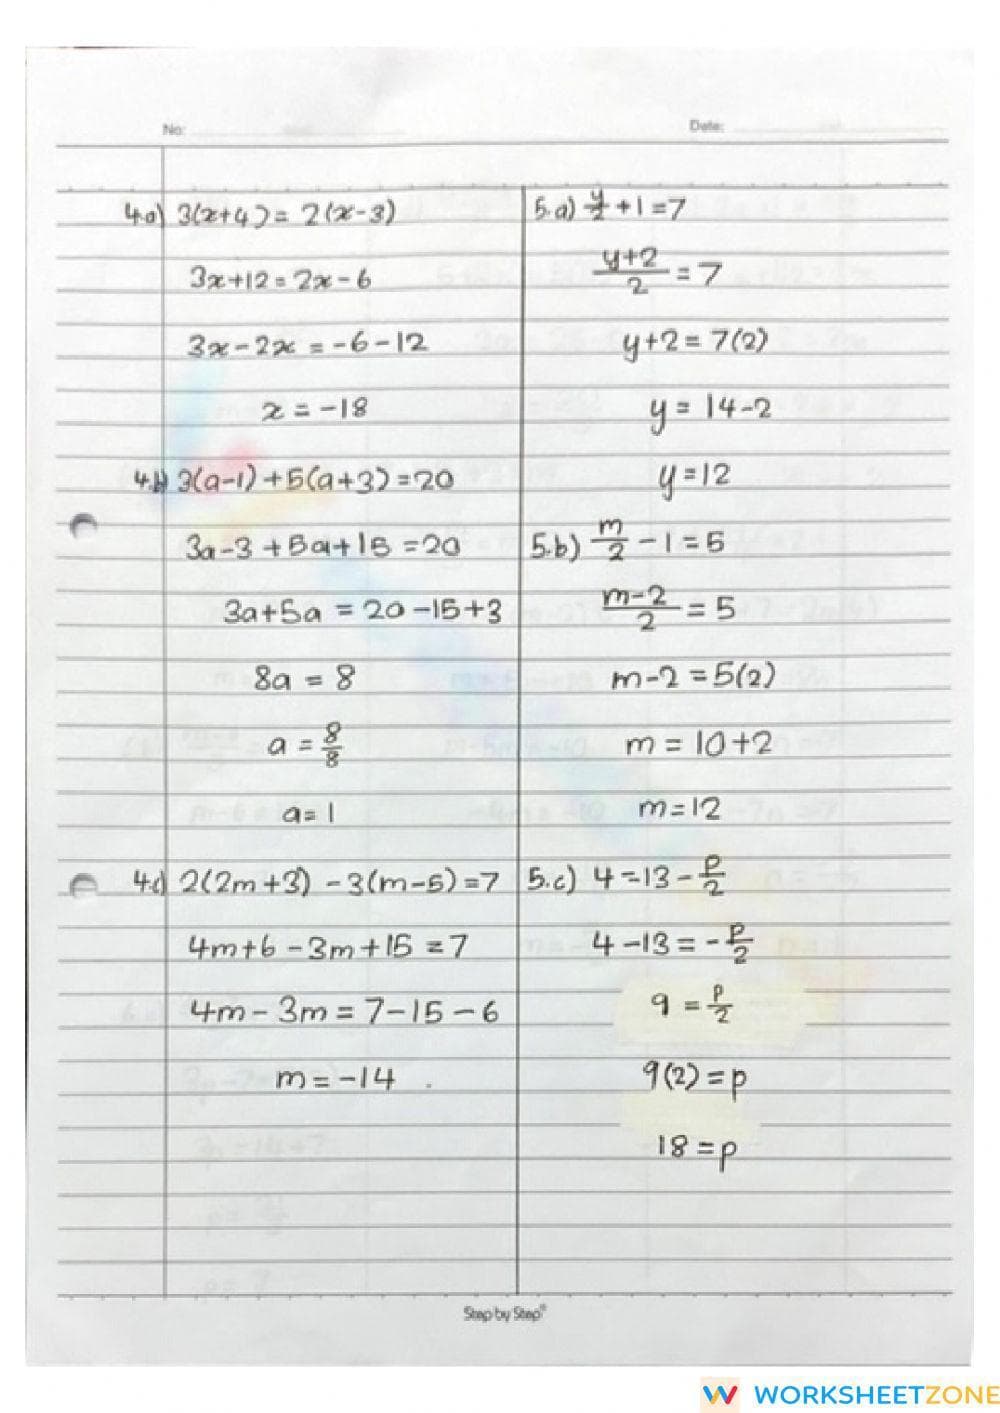 No:
Date:
4.a) 3(x+4) = 2(x-3)
3x+12 = 2x-6
3x-2x = -6-12
x = -18
4.b) 3(a-1)+5(a+3)=20
3a-3+5a+15=20
3a+5a = 20-15+3
8a = 8
a = 8/8
a=1
4.c) 2(2m+3) -3(m-5)=7
4m+6-3m+15=7
4m-3m=7-15-6
m=-14 .
5.a) y/2 +1=7
y+2/2 = 7
y+2=7(2)
y = 14-2
y=12
5.b) m/2 -1=5
m-2/2 = 5
m-2=5(2)
m = 10+2
m=12
5.c) 4=13-p/2
4-13=-p/2
9 = p/2
9(2)=p
18=p
Step by Step®
WORKSHEETZONE